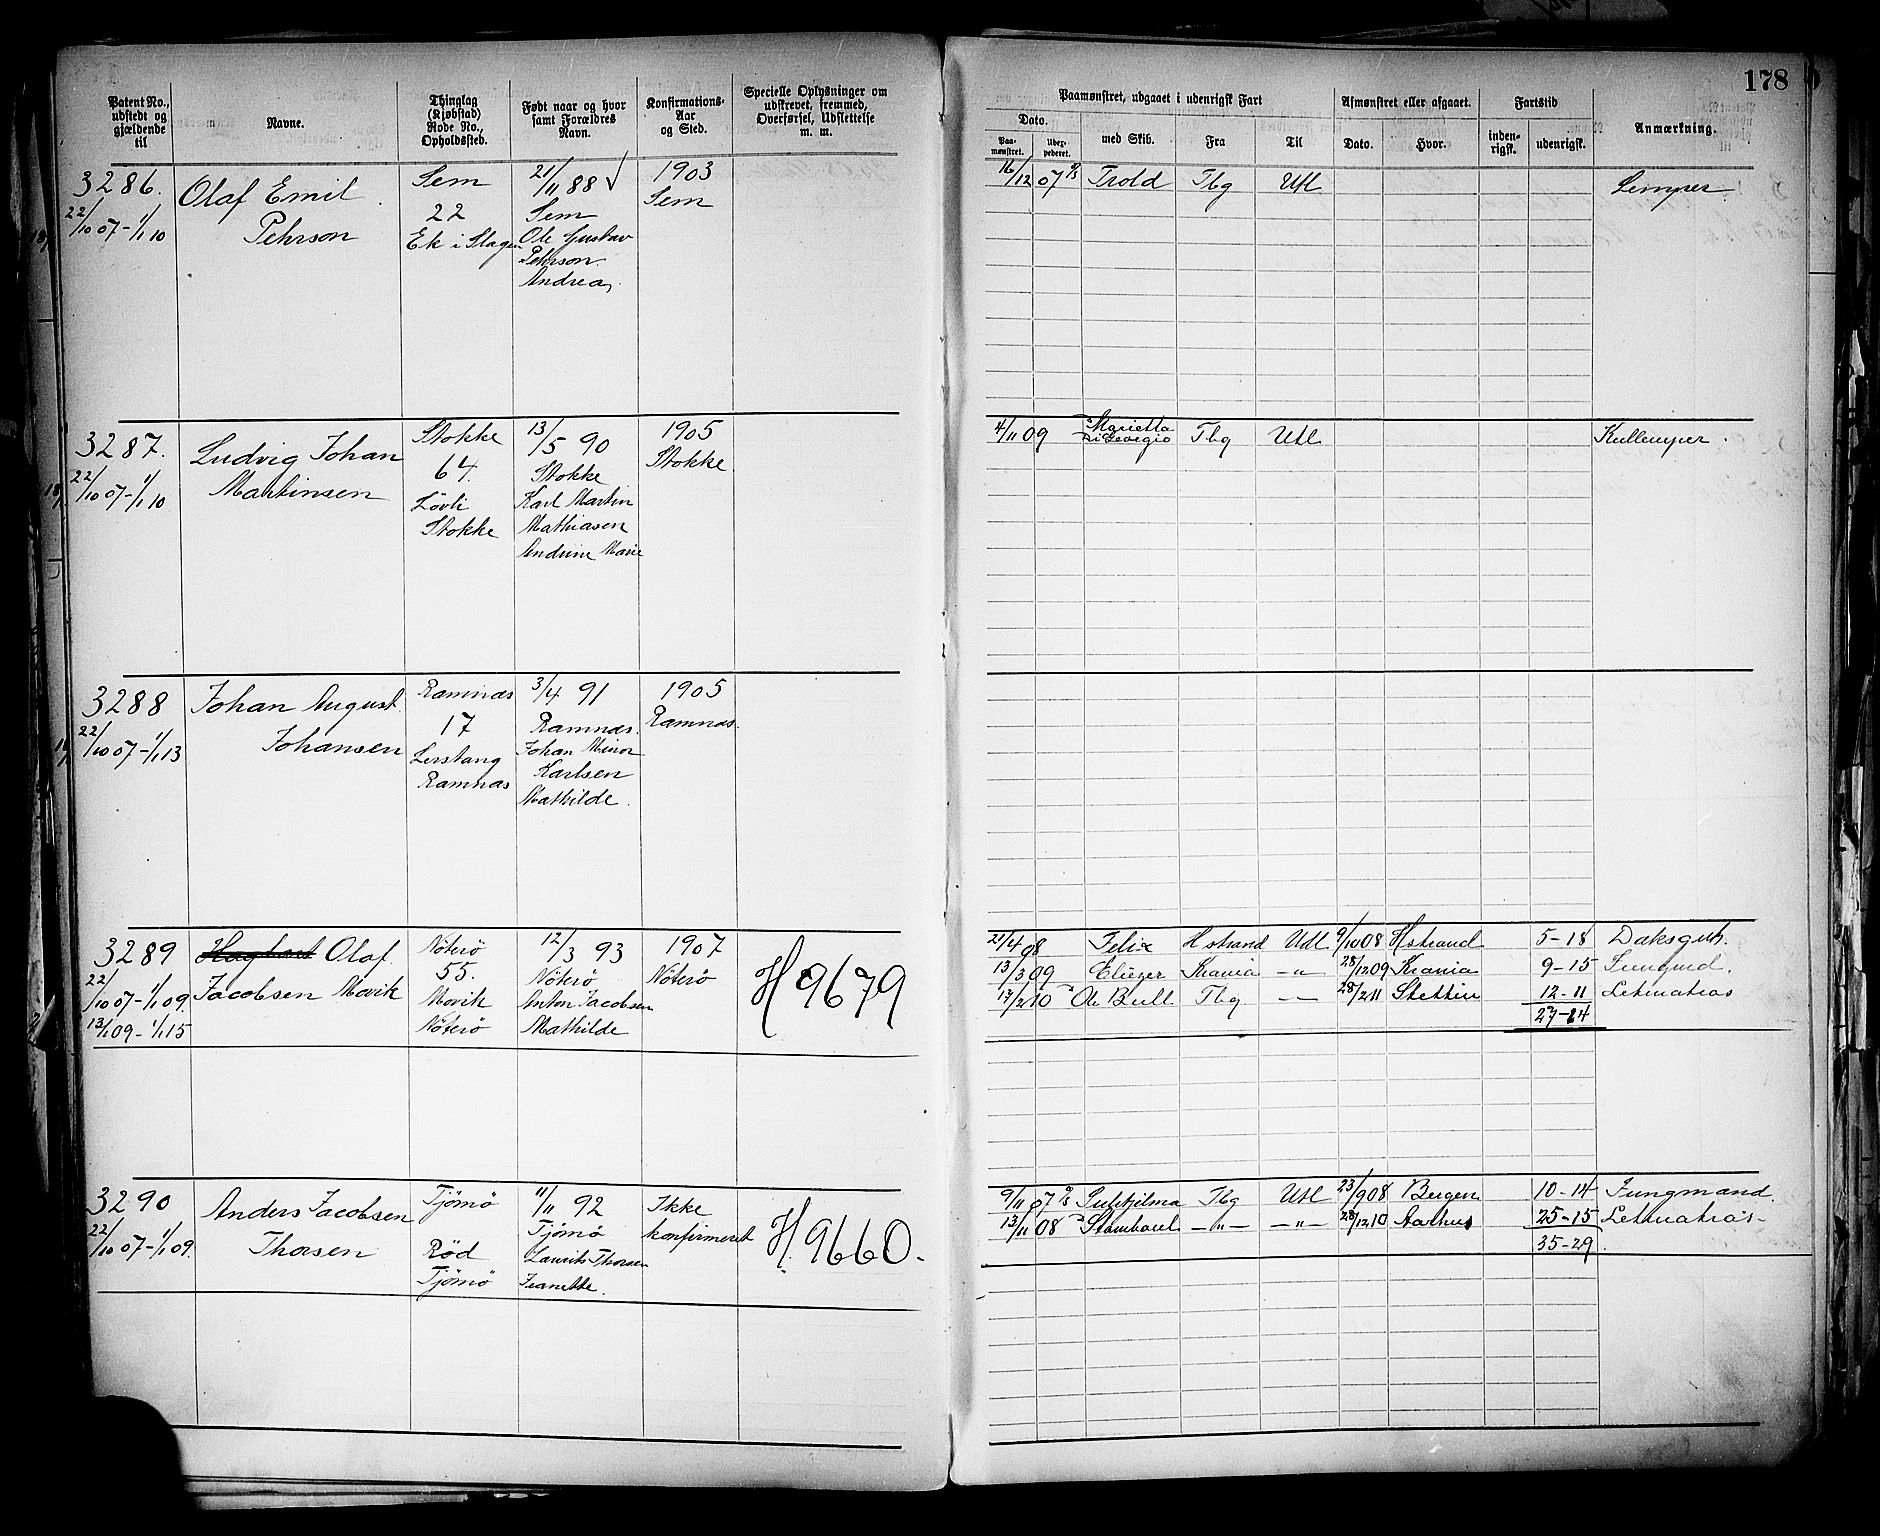 178
Patent No., udstedt og gjældende til
Navne.
Thinglag (Kjøbstad) Rode No., Opholdssted.
Født naar og hvor samt Forældres Navn.
Konfirmations-Aar og Sted.
Specielle Oplysninger om udskrevet, fremmed, Overførsel, Udslettelse m. m.
Paamønstret, udgaaet i udenrigsk Fart
Afmønstret eller afgaaet.
Fartstid
Anmærkning.
Dato.
Paa-mønstret.
med Skib.
Fra
Til
Dato.
Hvor.
inden-rigsk.
udenrigsk.
3286.
22/10 07 - 1/1 10
Olaf Emil
Pehrson
Sem
22
Ek i Slagen
21/11 88 √
Sem
Ole Gustav
Pehrson.
Andrea
1903
Sem
16/12 07 Trold Tbg Utl
3287.
22/10 07 - 1/1 10
Ludvig Johan
Martinsen
Stokke
64.
Lövli
Stokke
13/5 90
Stokke
Karl Martin
Mathiasen
Andrine Marie
1905
Stokke
4/11 09 Marietta di Georgio Tbg Utl
3288
22/10 07 - 1/1 13
Johan August
Johansen
Ramnæs
17
Lerstang
Ramnæs
3/4 91
Ramnæs.
Johan Minor
Karlsen
Mathilde.
1905
Ramnæs.
3289
22/10 07 - 1/1 09.
13/1 09 - 1/1 15
Hagbart Olaf
Jacobsen Movik
Nöterö
55.
Movik
Nöterö
12/3 93
Nöterö
Anton Jacobsen
Mathilde
1907
Nöterö
H 9679
21/4 08 Felix Hstrand Udl 9/10 08 Hstrand 5-18
13/3 09 Eliezer Krania -"- 28/12 09 Krania 9-15
17/2 10 Ole Bull Tbg 28/2 11 Stettin 12-11 Letmatros
27-14
3290
22/10 07 - 1/1 09.
Anders Jacobsen
Thorsen
Tjömö
Röd
Tjömö
11/11 92
Tjömö
Laurits Thorsen
Jeanette.
Ikke
konfirmeret
H. 9660.
9/11 07 Tbg Utl 23/9 08 Bergen 10-14 Jungmand.
13/11 08 Stamboul -"- -"- 28/12 10 Aarhus 25-15 Letmatros-
35-29.